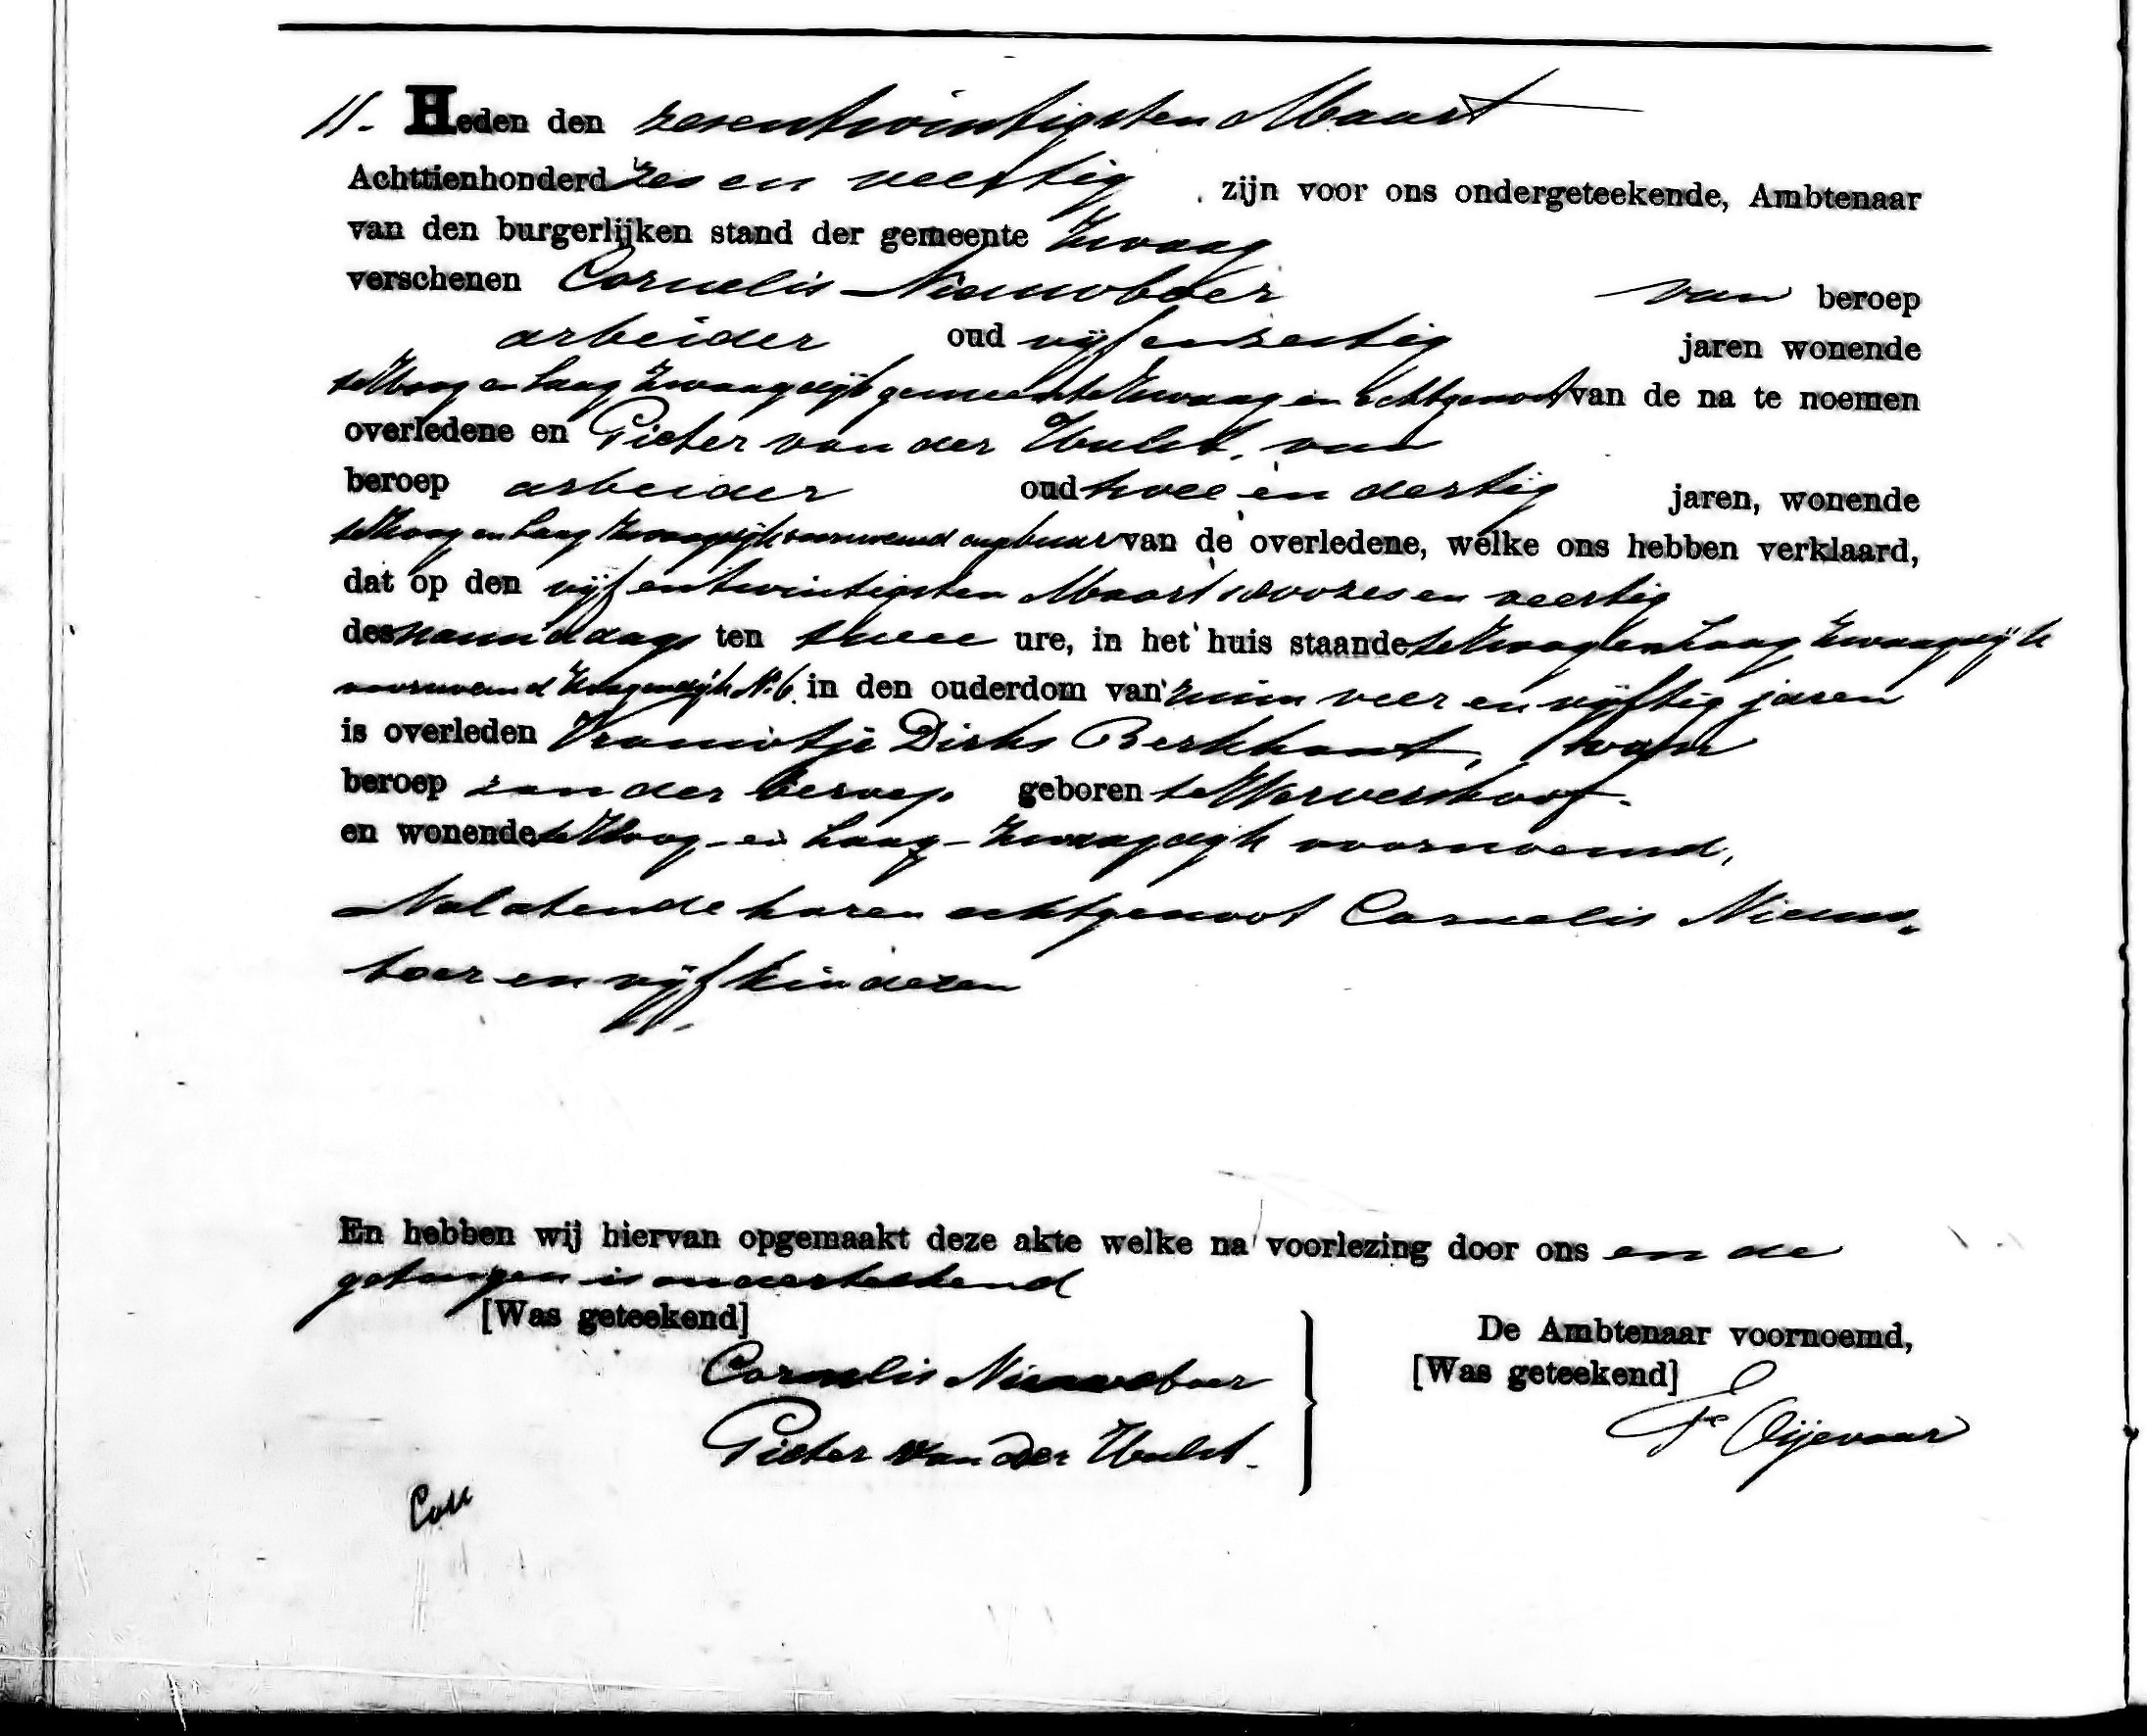 11. Heden den zesentwintigsten Maart
Achttienhonderd zes en veertig, zijn voor ons ondergeteekende, Ambtenaar
van den burgerlijken stand der gemeente Zwaag
verschenen Cornelis Nieuwboer van beroep
arbeider oud vijf en zestig jaren wonende
te Hoog en Laag Zwaagdijk gemeente Zwaag en echtgenoot van de na te noemen
overledene en Pieter van der Hulst, van
beroep arbeider oud twee en dertig jaren, wonende
te Hoog en Laag Zwaagdijk voornoemd en gebuur van de overledene, welke ons hebben verklaard,
dat op den vijf entwintigsten Maart 1800 zes en veertig
des namiddags ten twee ure, in het huis staande te Hoog en Laag Zwaagdijk
voornoemd No. 6 in den ouderdom van ruim veer en vijftig jaren
is overleden Dirks Berkhout, van
beroep zonder beroep geboren te Wervershoof.
en wonende te Hoog- en Laag- Zwaagdijk voornoemd,
Nalatende haren echtgenoot Cornelis Nieuw-
boer en vijf kinderen
En hebben wij hiervan opgemaakt deze akte welke na voorlezing door ons en de
getuigen is onderteekend
[Was geteekend]
De Ambtenaar voornoemd,
[Was geteekend]
Cornelis Nieuweboer
Pieter van der Hulst.
Coll